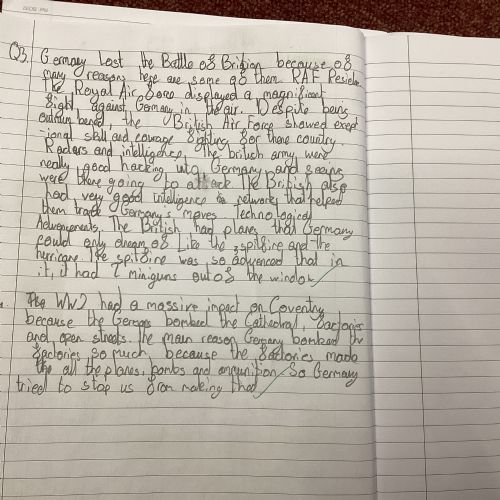 Q3. Germany Lost the Battle of Britian because of
many reasons here are some of them RAF Resielen
The Royal Air force displayed a magnificent
fight against Germany in the air. Despite being
outnumbered, the British Air Force showed except
-ional skill and courage fighting for there country.
Radars and intelligence, The british army were
really good hacking into Germany and seeing
were there going to attack the British also
had very good intelligence networks that helped
them track Germany's moves Technological
Advancments, The British had planes that Germany
could only dream of Like the spitfire and the
hurricane the spitfire was so advanced that in
it, it had 7 miniguns out of the window
The WW2 had a massive impact on Coventry
because the Germans bombed the Cathedral, factories
and open streets. the main reason Germany bombed the
factories so much, because the factories made
the all the planes, bombs and ammunition. So Germany
tried to stop us from making that